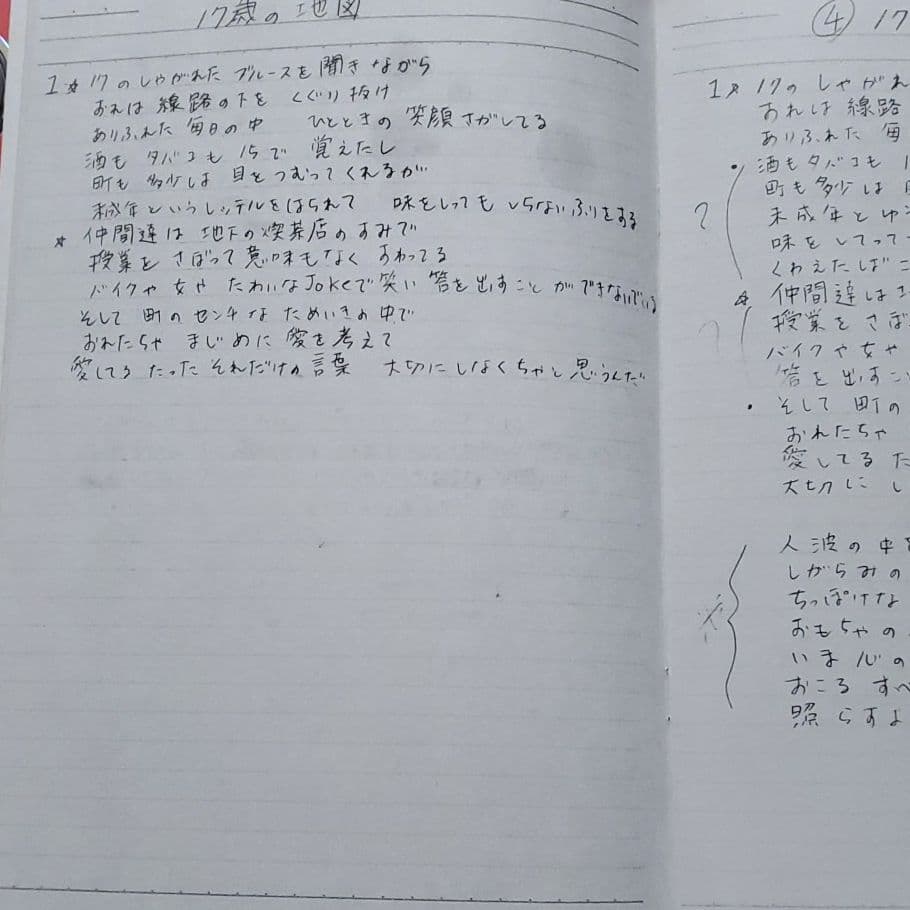 17歳の地図
1☆17のしゃがれた ブルースを聞きながら
おれは 線路の下を くぐり抜け
ありふれた 毎日の中 ひとときの 笑顔さがしてる
酒も タバコも 15で 覚えたし
町も 多少は 目をつむってくれるが
未成年というレッテルをはられて 味をしっても しらないふりをする
☆ 仲間達は 地下の喫茶店のすみで
授業を さぼって意味もなく すわってる
バイクや 女や たわいなJokeで笑い 答を出すことができないでいる
そして 町の センチな ためいきの中で
おれたちゃ まじめに 愛を考えて
愛してる たった それだけの 言葉 大切にしなくちゃと思うんだ
④ 17
1☆ 17の しゃがれ
おれは 線路
ありふれた 毎
・酒もタバコも 1
町も多少は
?
未成年とゆ
味をしってて
くわえたばこ
☆ 仲間達は
授業を さぼ
?
バイクや女や
答を出すこと
・そして 町の
おれたちゃ
愛してる た
大切に し
人波の中を
しがらみの
ちっぽけな
おもちゃの
いま 心の
おころ すべ
照らすよ